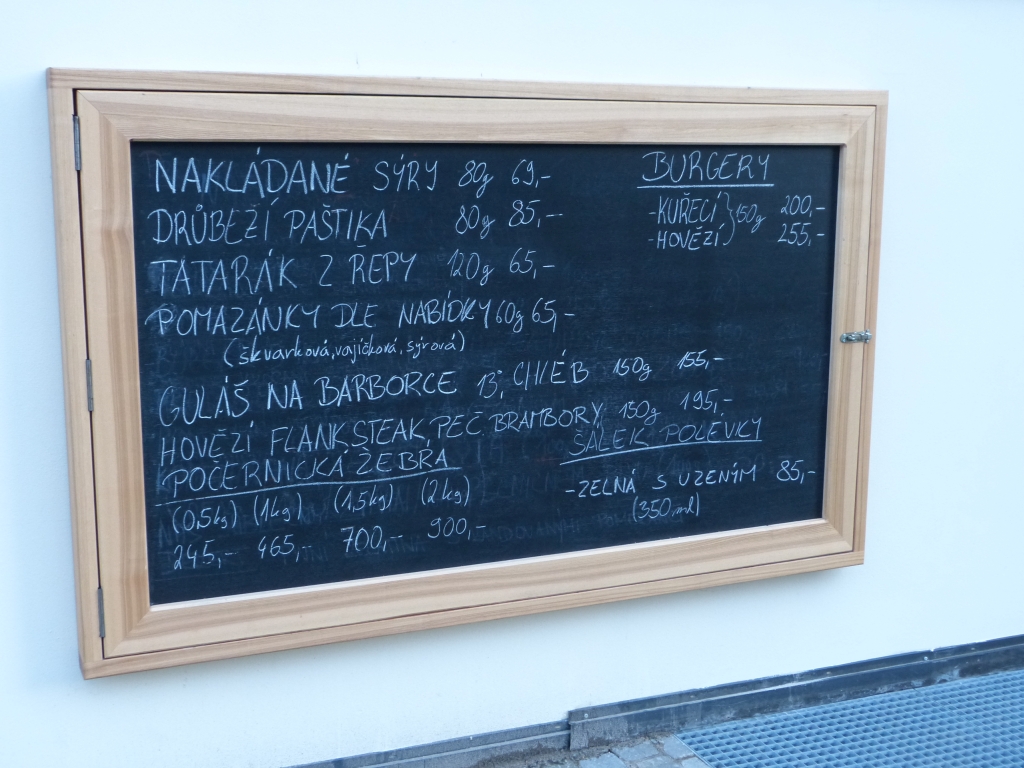 NAKLÁDANÉ SÝRY 80g 69,-
DRŮBEŽÍ PAŠTIKA 80g 85,-
TATARÁK Z ŘEPY 120g 65,-
POMAZÁNKY DLE NABÍDKY 60g 65,-
(škvarková, vajíčková, sýrová)
GULÁŠ NA BARBORCE 13°, CHLÉB 150g 155,-
HOVĚZÍ FLANK STEAK, PEČ BRAMBORY 150g 195,-
POČERNICKÁ ŽEBRA
(0,5kg) (1kg) (1,5kg) (2kg)
245,- 465,- 700,- 900,-
BURGERY
-KUŘECÍ } 150g 200,-
-HOVĚZÍ 255,-
ŠÁLEK POLÉVKY
-ZELNÁ S UZENÝM 85,-
(350 ml)